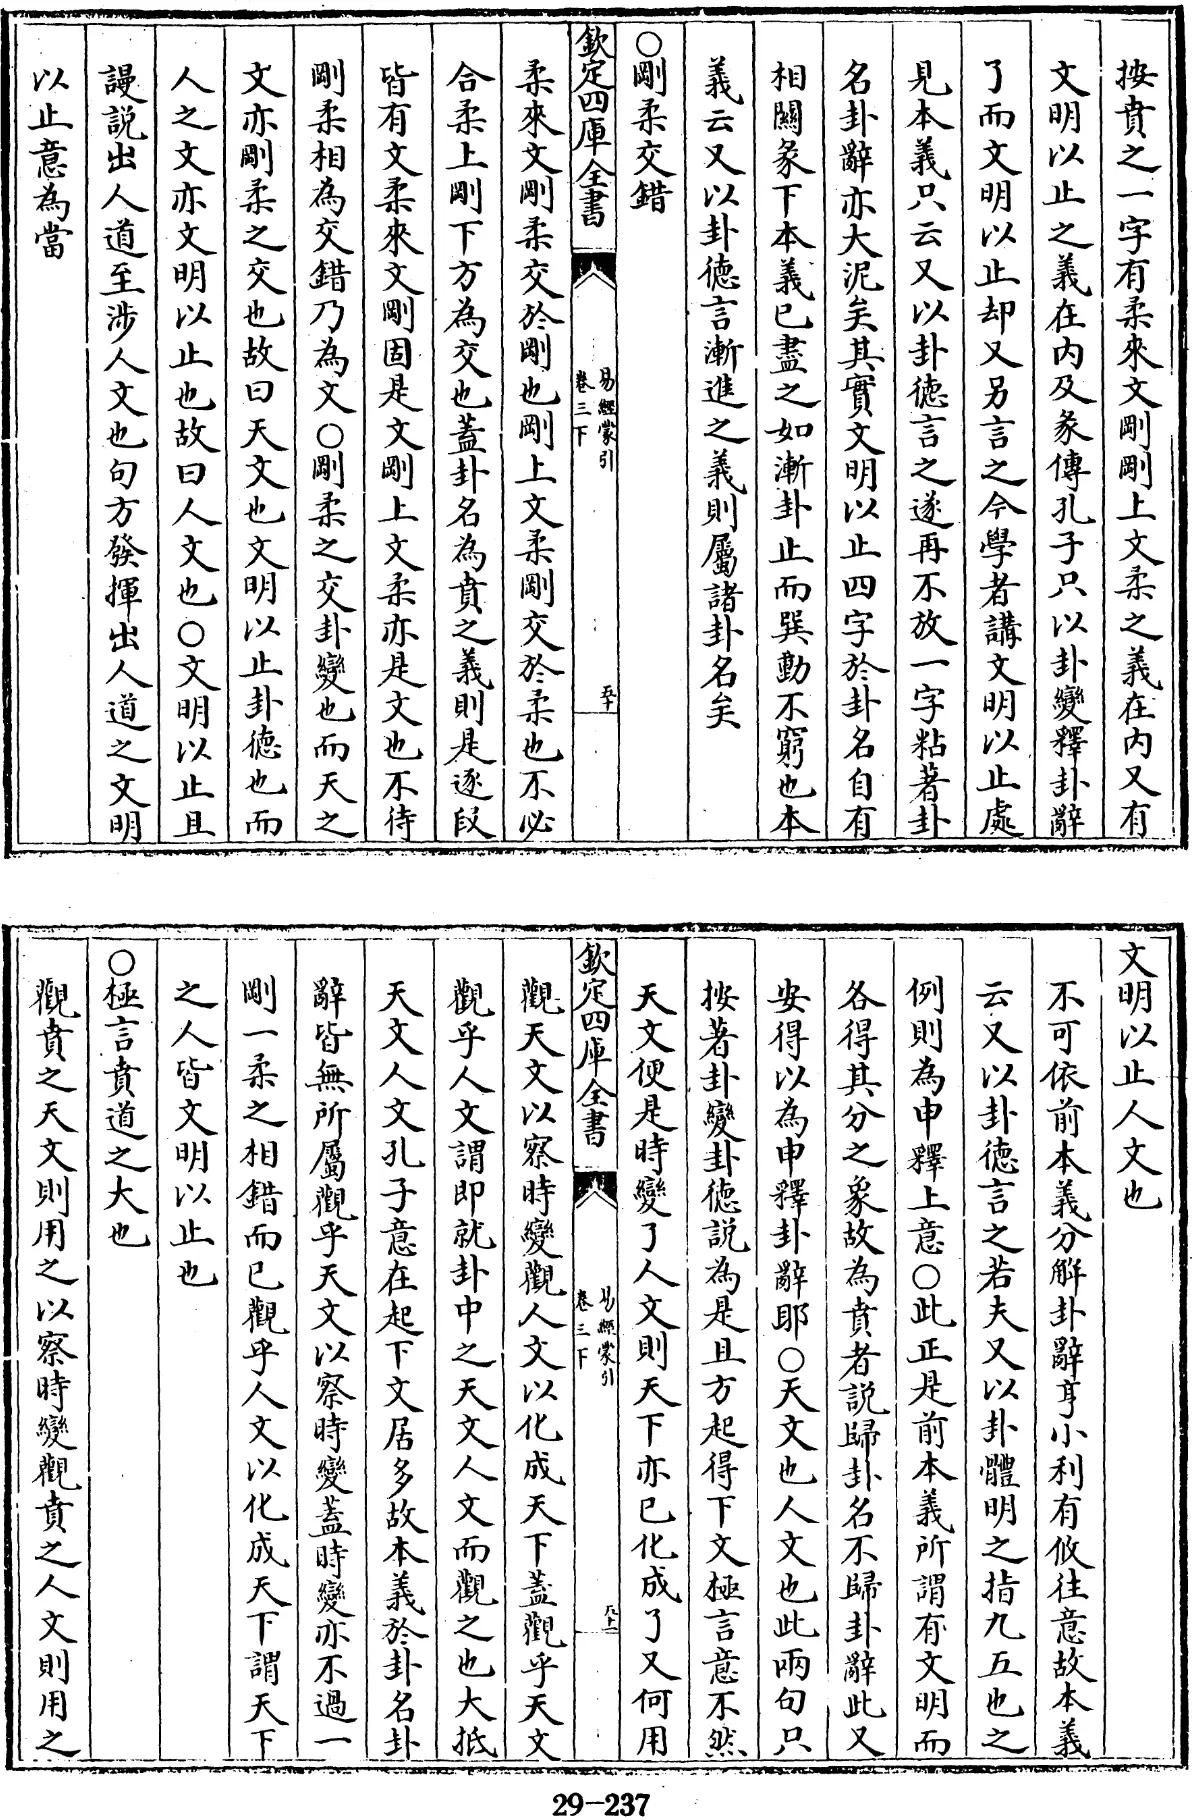 按賁之一字有柔來文剛剛上文柔之義在内又有
文明以止之義在内及彖傳孔子只以卦變釋卦辭
了而文明以止却又另言之今學者講文明以止處
見本義只云又以卦德言之遂再不放一字粘著卦
名卦辭亦大泥矣其實文明以止四字於卦名自有
相關彖下本義已盡之如漸卦止而巽動不窮也本
義云又以卦德言漸進之義則屬諸卦名矣
○剛柔交錯
欽定四庫全書
易經蒙引
卷三下
五十
柔來文剛柔交於剛也剛上文柔剛交於柔也不必
合柔上剛下方為交也蓋卦名為賁之義則是逐段
皆有文柔來文剛固是文剛上文柔亦是文也不待
剛柔相為交錯乃為文○剛柔之交卦變也而天之
文亦剛柔之交也故曰天文也文明以止卦德也而
人之文亦文明以止也故曰人文也○文明以止且
謾説出人道至涉人文也句方發揮出人道之文明
以止意為當
文明以止人文也
不可依前本義分解卦辭亨小利有攸往意故本義
云又以卦德言之若夫又以卦體明之指九五也之
例則為申釋上意○此正是前本義所謂有文明而
各得其分之象故為賁者説歸卦名不歸卦辭此又
安得以為申釋卦辭耶○天文也人文也此兩句只
按著卦變卦德説為是且方起得下文極言意不然
天文便是時變了人文則天下亦已化成了又何用
欽定四庫全書
易經蒙引
卷三下
觀天文以察時變觀人文以化成天下蓋觀乎天文
觀乎人文謂即就卦中之天文人文而觀之也大抵
天文人文孔子意在起下文居多故本義於卦名卦
辭皆無所屬觀乎天文以察時變蓋時變亦不過一
剛一柔之相錯而已觀乎人文以化成天下謂天下
之人皆文明以止也
○極言賁道之大也
觀賁之天文則用之以察時變觀賁之人文則用之
29-237